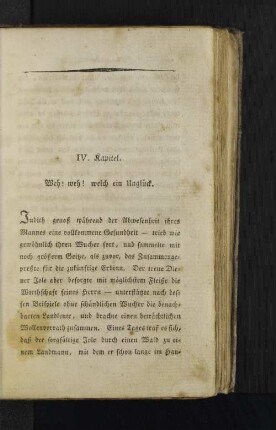 IV. Kapitel.
Weh! weh! welch ein Unglück.
Judith genoß während der Abwesenheit ihres
Mannes eine vollkommene Gesundheit — trieb wie
gewöhnlich ihren Wucher fort, und sammelte mit
noch größerm Geitze, als zuvor, das Zusammenge-
preßte für die zukünftige Erbinn. Der treue Die-
ner Jole aber besorgte mit möglichstem Fleiße die
Wirthschaft seines Herrn — unterstützte nach des-
sen Beispiele ohne schändlichen Wucher die benach-
barten Landleute, und brachte einen beträchtlichen
Wollenvorrath zusammen. Eines Tages traf es sich,
daß der sorgfältige Jole durch einen Wald zu ei-
nem Landmann, mit dem er schon lange im Han-